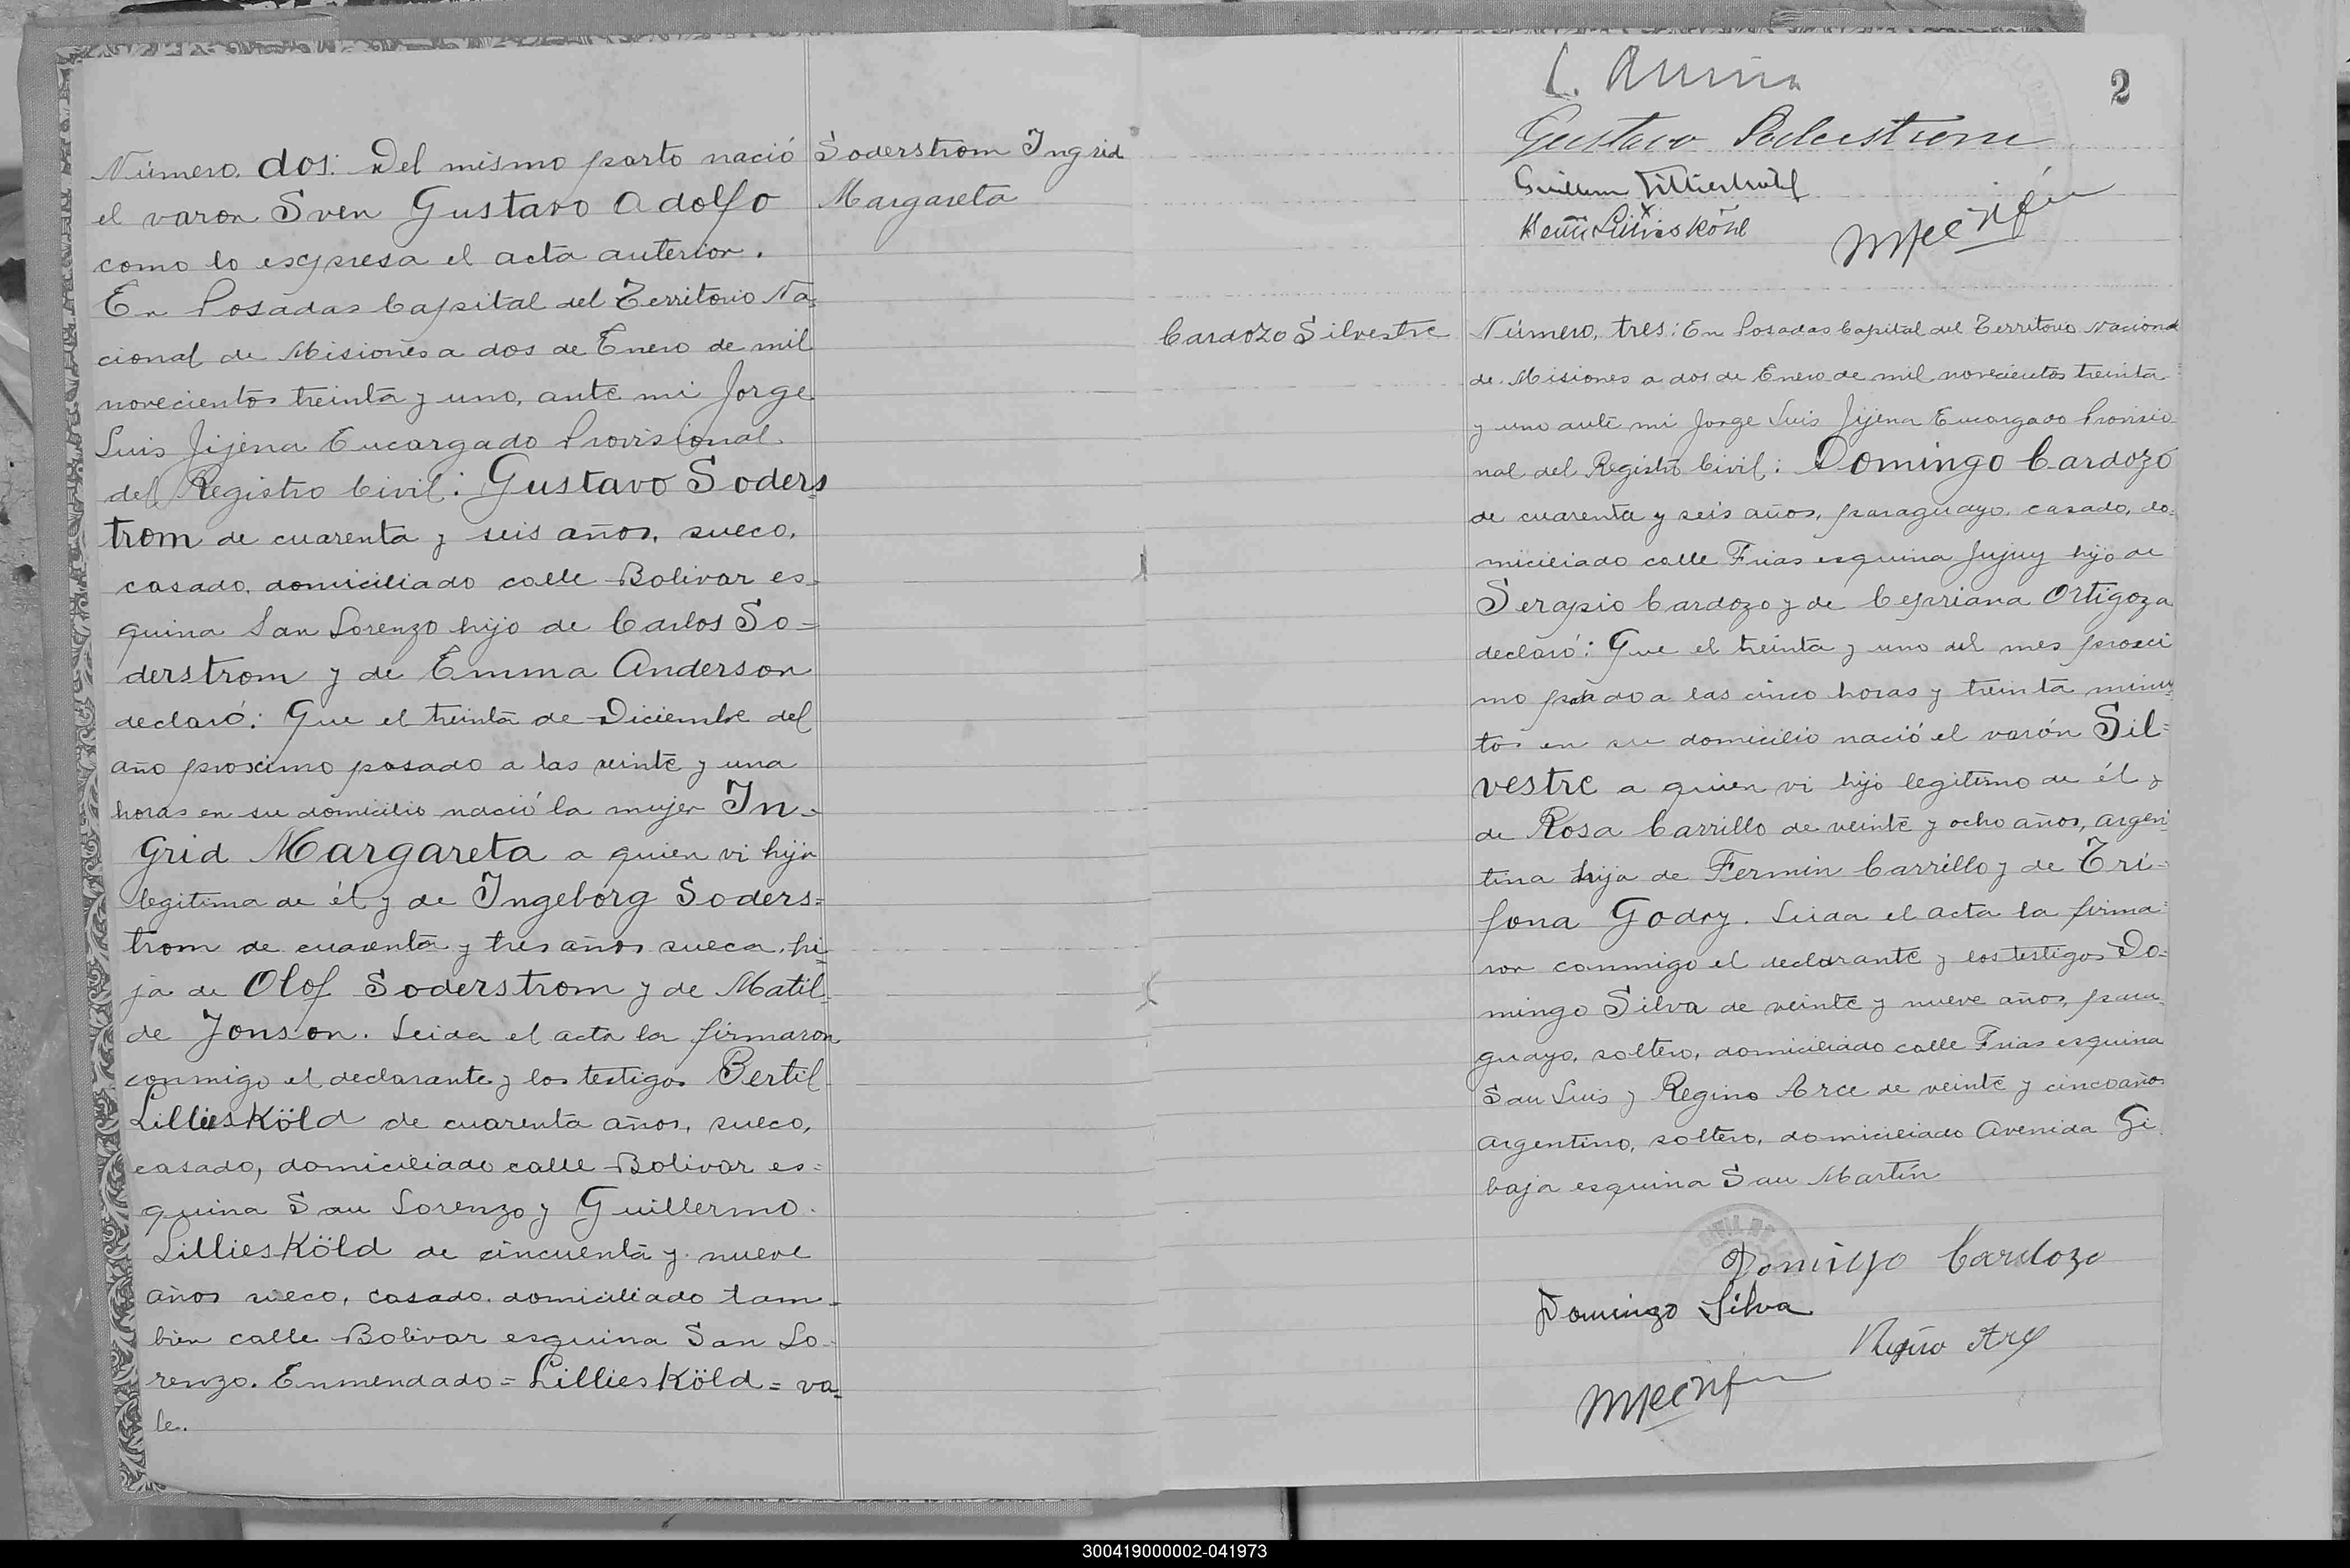 Número dos: Del mismo parto nació
el varon Sven Gustavo Adolfo
como lo expresa el acta anterior.
En Posadas Capital del Territorio Na=
cional de Misiones a dos de Enero de mil
novecientos treinta y uno, ante mi Jorge
Luis Jijena Encargado Provisional
del Registro Civil: Gustavo Soders
trom de cuarenta y seis años, sueco,
casado, domiciliado calle Bolivar es=
quina San Lorenzo hijo de Carlos So=
derstrom y de Emma Anderson
declaró: Que el treinta de Diciembre del
año proximo pasado a las veinte y una
horas en su domicilio nació la mujer In=
grid Margareta a quien vi hija
legitima de él y de Ingeborg Soders=
trom de cuarenta y tres años sueca, hi=
ja de Olof Soderstrom y de Matil=
de Jonson. Leida el acta la firmaron
conmigo el declarante y los testigos Bertil
Lillieskóld de cuarenta años, sueco,
casado, domiciliado calle Bolivar es=
quina San Lorenzo y Guillermo
Lillieskóld de cincuenta y nueve
años sueco, casado, domiciliado tam=
bien calle Bolivar esquina San Lo=
renzo. Enmendado=Lillieskóld=va=
le.
Soderstrom Ingrid
Margareta
2
Gustavo Soderstrom
Cardozo Silvestre
Número, tres: En Posadas Capital del Territorio Nacional
de Misiones a dos de Enero de mil novecientos treinta
y uno ante mi Jorge Luis Jijena Encargado Provisio
nal del Registro Civil: Domingo Cardozo
de cuarenta y seis años, paraguayo, casado, do=
miciliado calle Frias esquina Jujuy hijo de
Serapio Cardozo y de Cepriana Ortigoza
declaró: Que el treinta y uno del mes proxi
mo pasado a las cinco horas y treinta minu
tos en su domicilio nació el varón Sil=
vestre a quien vi hijo legitimo de él y
de Rosa Carrillo de veinte y ocho años, argen
tina hija de Fermin Carrillo y de Tri=
fona Godoy. Leida el acta la firma=
ron conmigo el declarante y los testigos Do=
mingo Silva de veinte y nueve años, para
guayo, soltero, domiciliado calle Frias esquina
San Luis y Regino Arce de veinte y cinco años
argentino, soltero, domiciliado Avenida Gi
baja esquina San Martin
Domingo Cardozo
Domingo Silva
Regino Arce
300419000002-041973